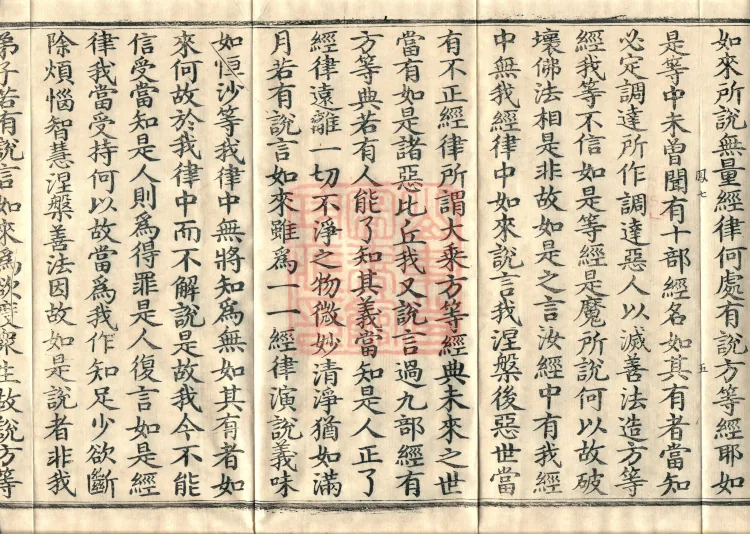 如來所說無量經律何處有說方等經耶如
鳳七
五
是等中未曾聞有十部經名如其有者當知
必定調達所作調達惡人以滅善法造方等
經我等不信如是等經是魔所說何以故破
壞佛法相是非故如是之言汝經中有我經
中無我經律中如來說言我涅槃後惡世當
有不正經律所謂大乘方等經典未來之世
當有如是諸惡比丘我又說言過九部經有
方等典若有人能了知其義當知是人正了
經律遠離一切不淨之物微妙清淨猶如滿
月若有說言如來雖為一一經律演說義味
如恒沙等我律中無將知為無如其有者如
來何故於我律中而不解說是故我今不能
信受當知是人則為得罪是人復言如是經
律我當受持何以故當為我作知足少欲斷
除煩惱智慧涅槃善法因故如是說者非我
弟子若有說言如來為欲度眾生故說方等